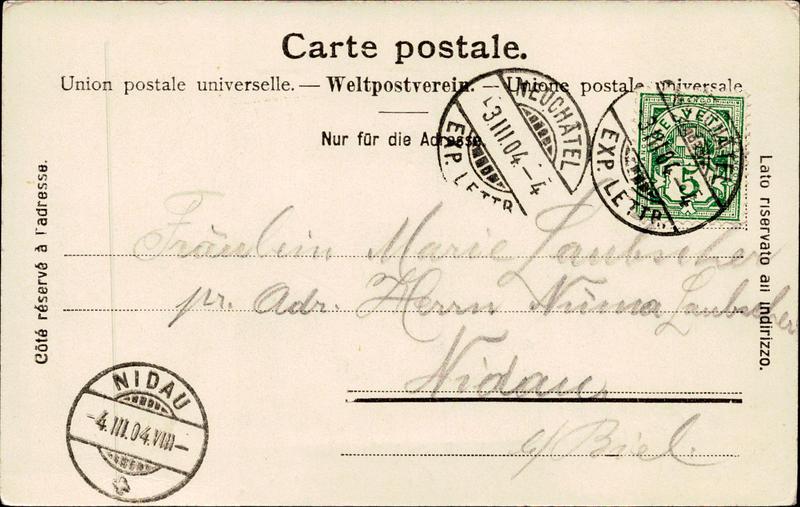 Carte postale.
Union postale universelle. — Weltpostverein. — Unione postale universale
Nur für die Adresse.
NEUCHÂTEL
-3.III.04.-4
EXP. LETTR.
NEUCHÂTEL
-3.III.04.-4
EXP. LETTR.
HELVETIA
5
Côté réservé à l'adresse.
Lato riservato all indirizzo.
Fräulein Marie Laubscher
pr. Adr. Herrn Numa Laubscher
Nidau,
b/ Biel.
NIDAU
-4.III.04.VIII-